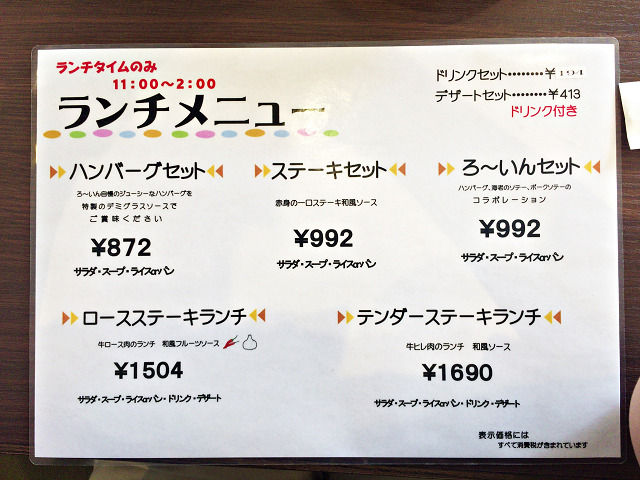 ランチタイムのみ
11:00～2:00
ランチメニュー
ドリンクセット・・・・・・・・¥194
デザートセット・・・・・・・・¥413
ドリンク付き
ハンバーグセット
ろ～いん自慢のジューシーなハンバーグを
特製のデミグラスソースで
ご賞味ください
¥872
サラダ・スープ・ライスorパン
ステーキセット
赤身の一口ステーキ和風ソース
¥992
サラダ・スープ・ライスorパン
ろ～いんセット
ハンバーグ、海老のソテー、ポークソテーの
コラボレーション
¥992
サラダ・スープ・ライスorパン
ロースステーキランチ
牛ロース肉のランチ 和風フルーツソース
¥1504
サラダ・スープ・ライスorパン・ドリンク・デザート
テンダーステーキランチ
牛ヒレ肉のランチ 和風ソース
¥1690
サラダ・スープ・ライスorパン・ドリンク・デザート
表示価格には
すべて消費税が含まれています